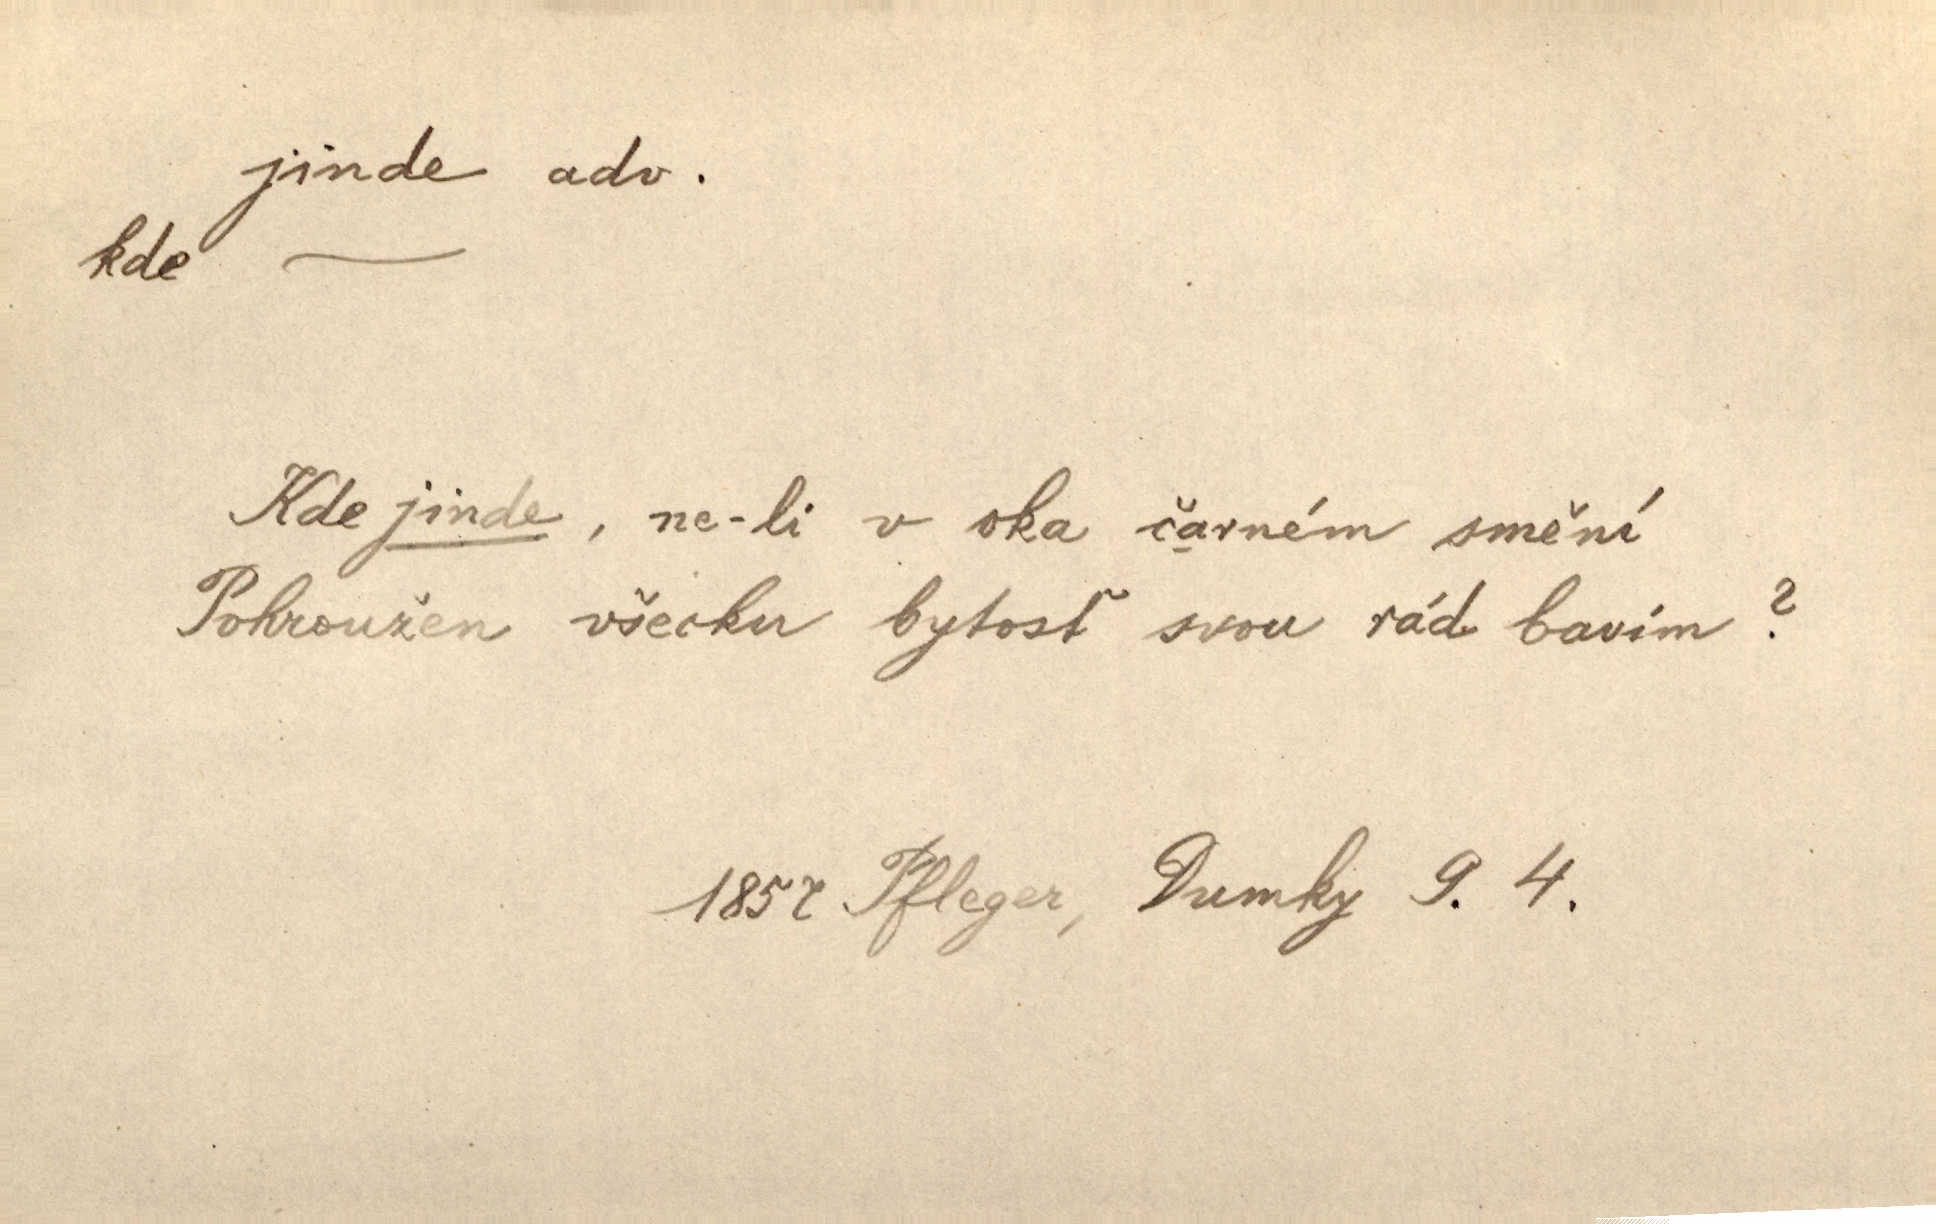 jinde adv.
kde —
Kde jinde, ne-li v oka čarném smění
Pohroužen všecku bytosť svou rád bavím?
1857 Pfleger, Dumky 9. 4.